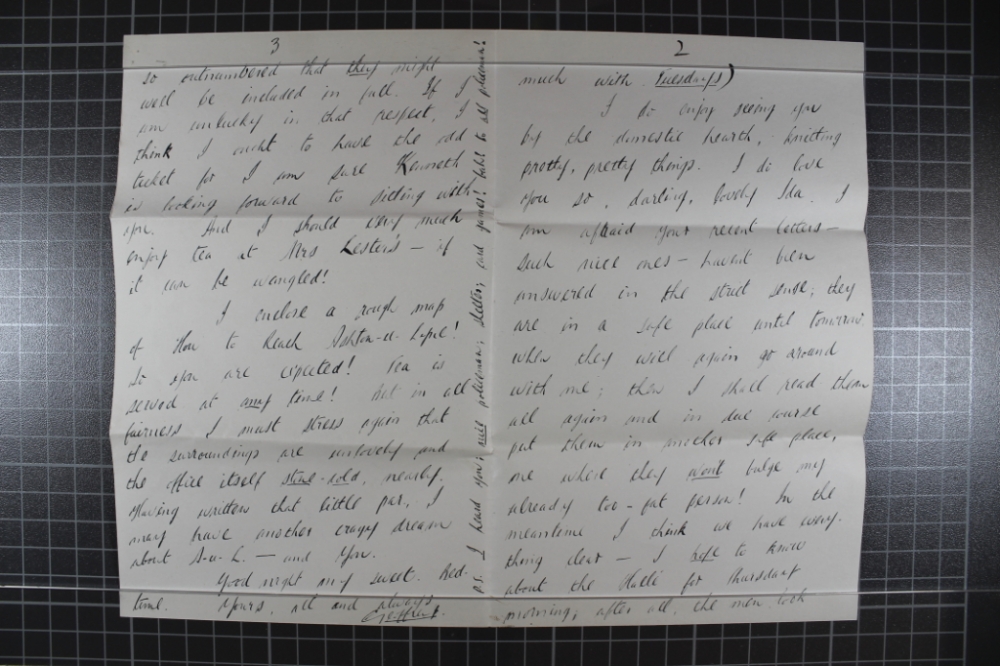 2
much with Tuesdays)
I do enjoy seeing you
by the domestic hearth, knitting
pretty, pretty things. I do love
you so, darling, lovely Ida. I
am afraid your recent letters —
such nice ones — havent been
answered in the strict sense; they
are in a safe place until tomorrow
when they will again go around
with me; then I shall read them
all again and in due course
put them in another safe place,
one where they wont bulge my
already too-fat person! In the
meantime I think we have every-
thing clear — I hope to know
about the Hallé for Thursday
morning; after all, the men look
3
so outnumbered that they might
well be included in full. If I
am unlucky in that respect, I
think I ought to have the odd
ticket for I am sure Kenneth
is looking forward to sitting with
you. And I should very much
enjoy tea at Mrs Lester's — if
it can be wangled!
I enclose a rough map
of How to Reach Ashton-u-Lyne!
So you are expected! Tea is
served at any time! But in all
fairness I must stress again that
the surroundings are unlovely and
the office itself stone-cold, nearly.
Having written that little par, I
may have another crazy dream
about A-u-L. — and you.
Good night my sweet. Bed-
time. Yours, all and always
Geoffrey.
P.S. I heard you; nice policeman; shelter; card games! hats to all policemen!